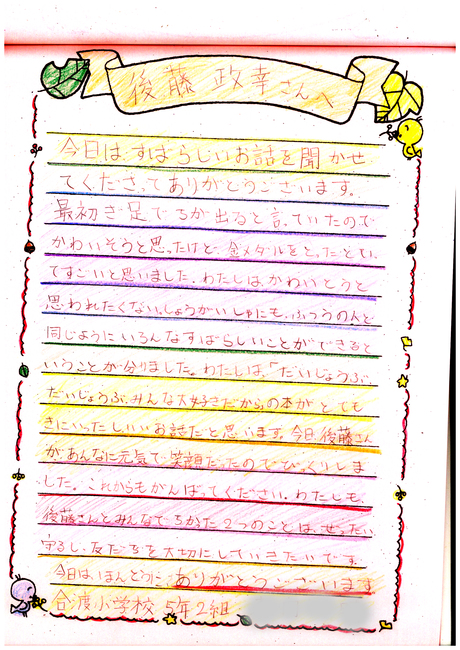 後藤 政幸さんへ
今日は、すばらしいお話を聞かせ
てくださってありがとうございます。
最初き足でるが出ると言っていたので
かわいそうと思ったけど、金メダルをとったとい
てすごいと思いました。わたしは、かわいそうと
思われたくない。しょうがいしゃにも、ふつうの人と
同じようにいろんなすばらしいことができると
いうことが分りました。わたしは、「だいじょうぶ
だいじょうぶ、みんな大好きだから」の本が とても
きにいったし、いいお話だと思います。今日、後藤さん
があんなに元気で笑顔だったのでびっくりしま
した。これからもがんばってください。わたしも、
後藤さんとみんなでちかった2つのことは、ぜったい
守るし、友だちを大切にしていきたいです。
今日は、ほんとうに、ありがとうございます
合渡小学校 5年2組